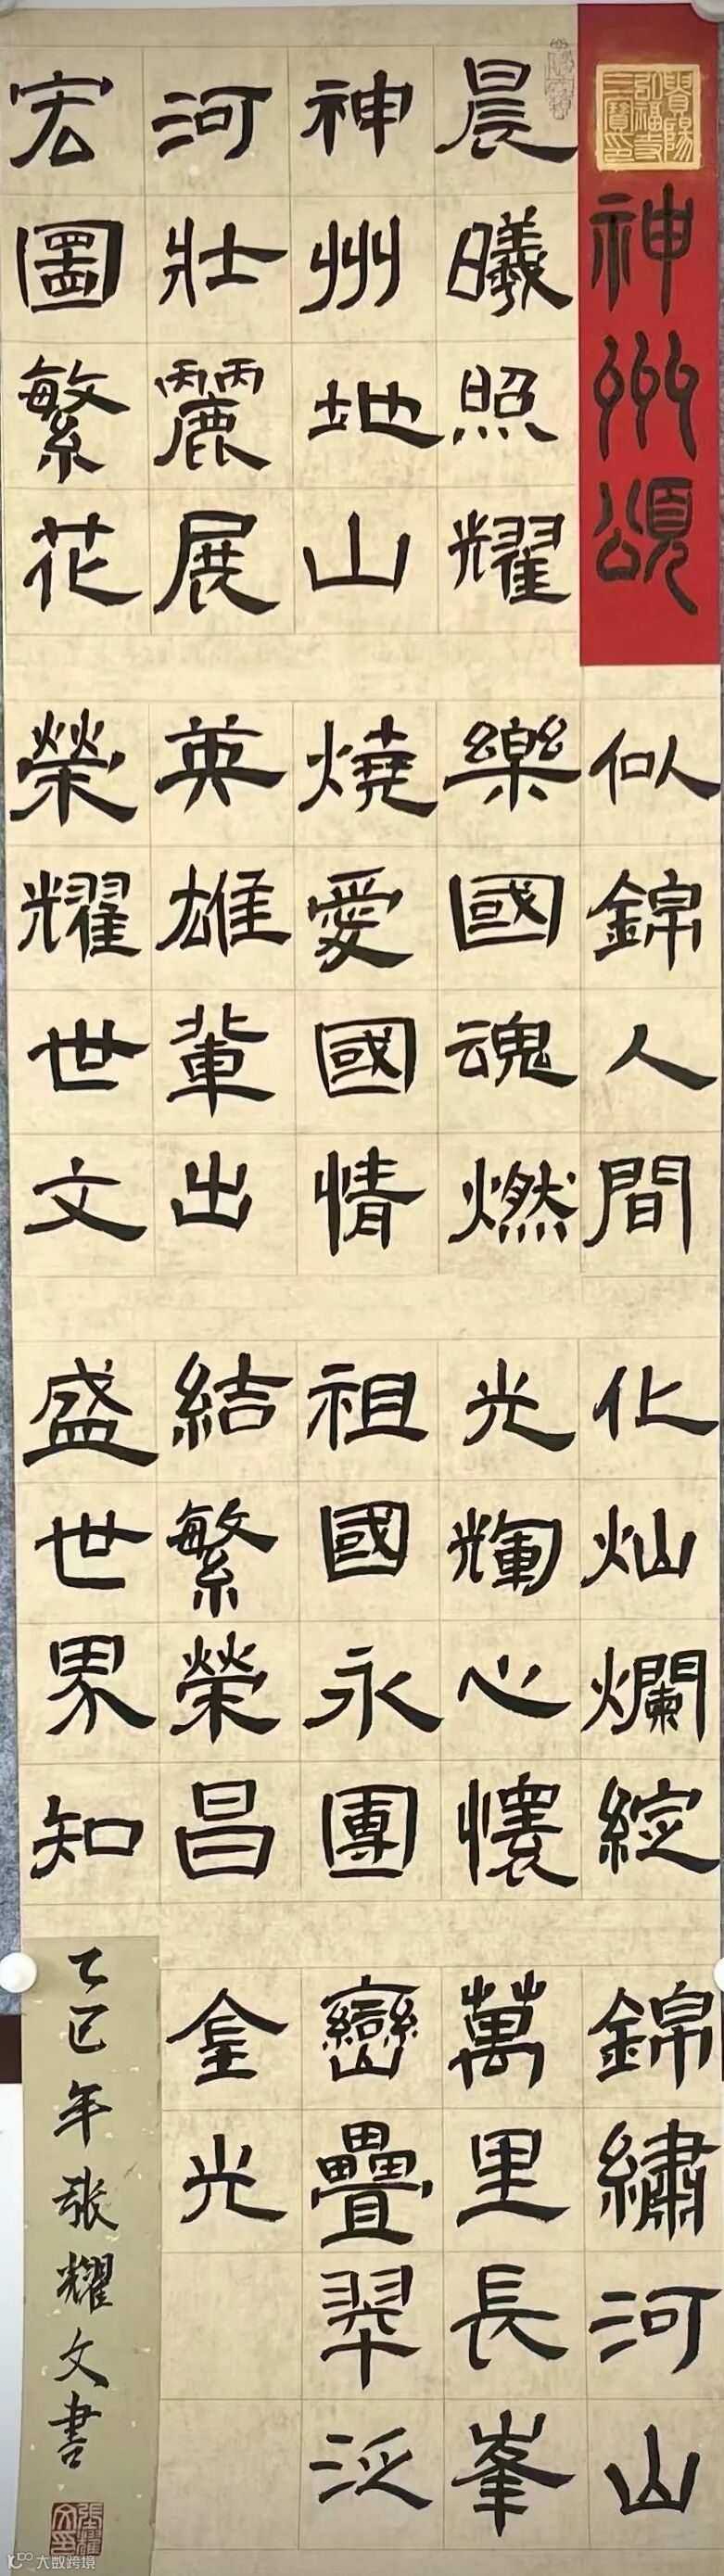 貴陽弘福寺三寶印
神州頌
晨曦照耀
神州地山
河壯麗展
宏圖繁花
似錦人間
樂國魂燃
燒愛國情
英雄輩出
榮耀世文
化灿爛綻
光輝心懷
祖國永團
結繁榮昌
盛世界知
錦繡河山
萬里長峯
巒疊翠泛
金光
乙巳年張耀文書
張耀文印
大数跨境